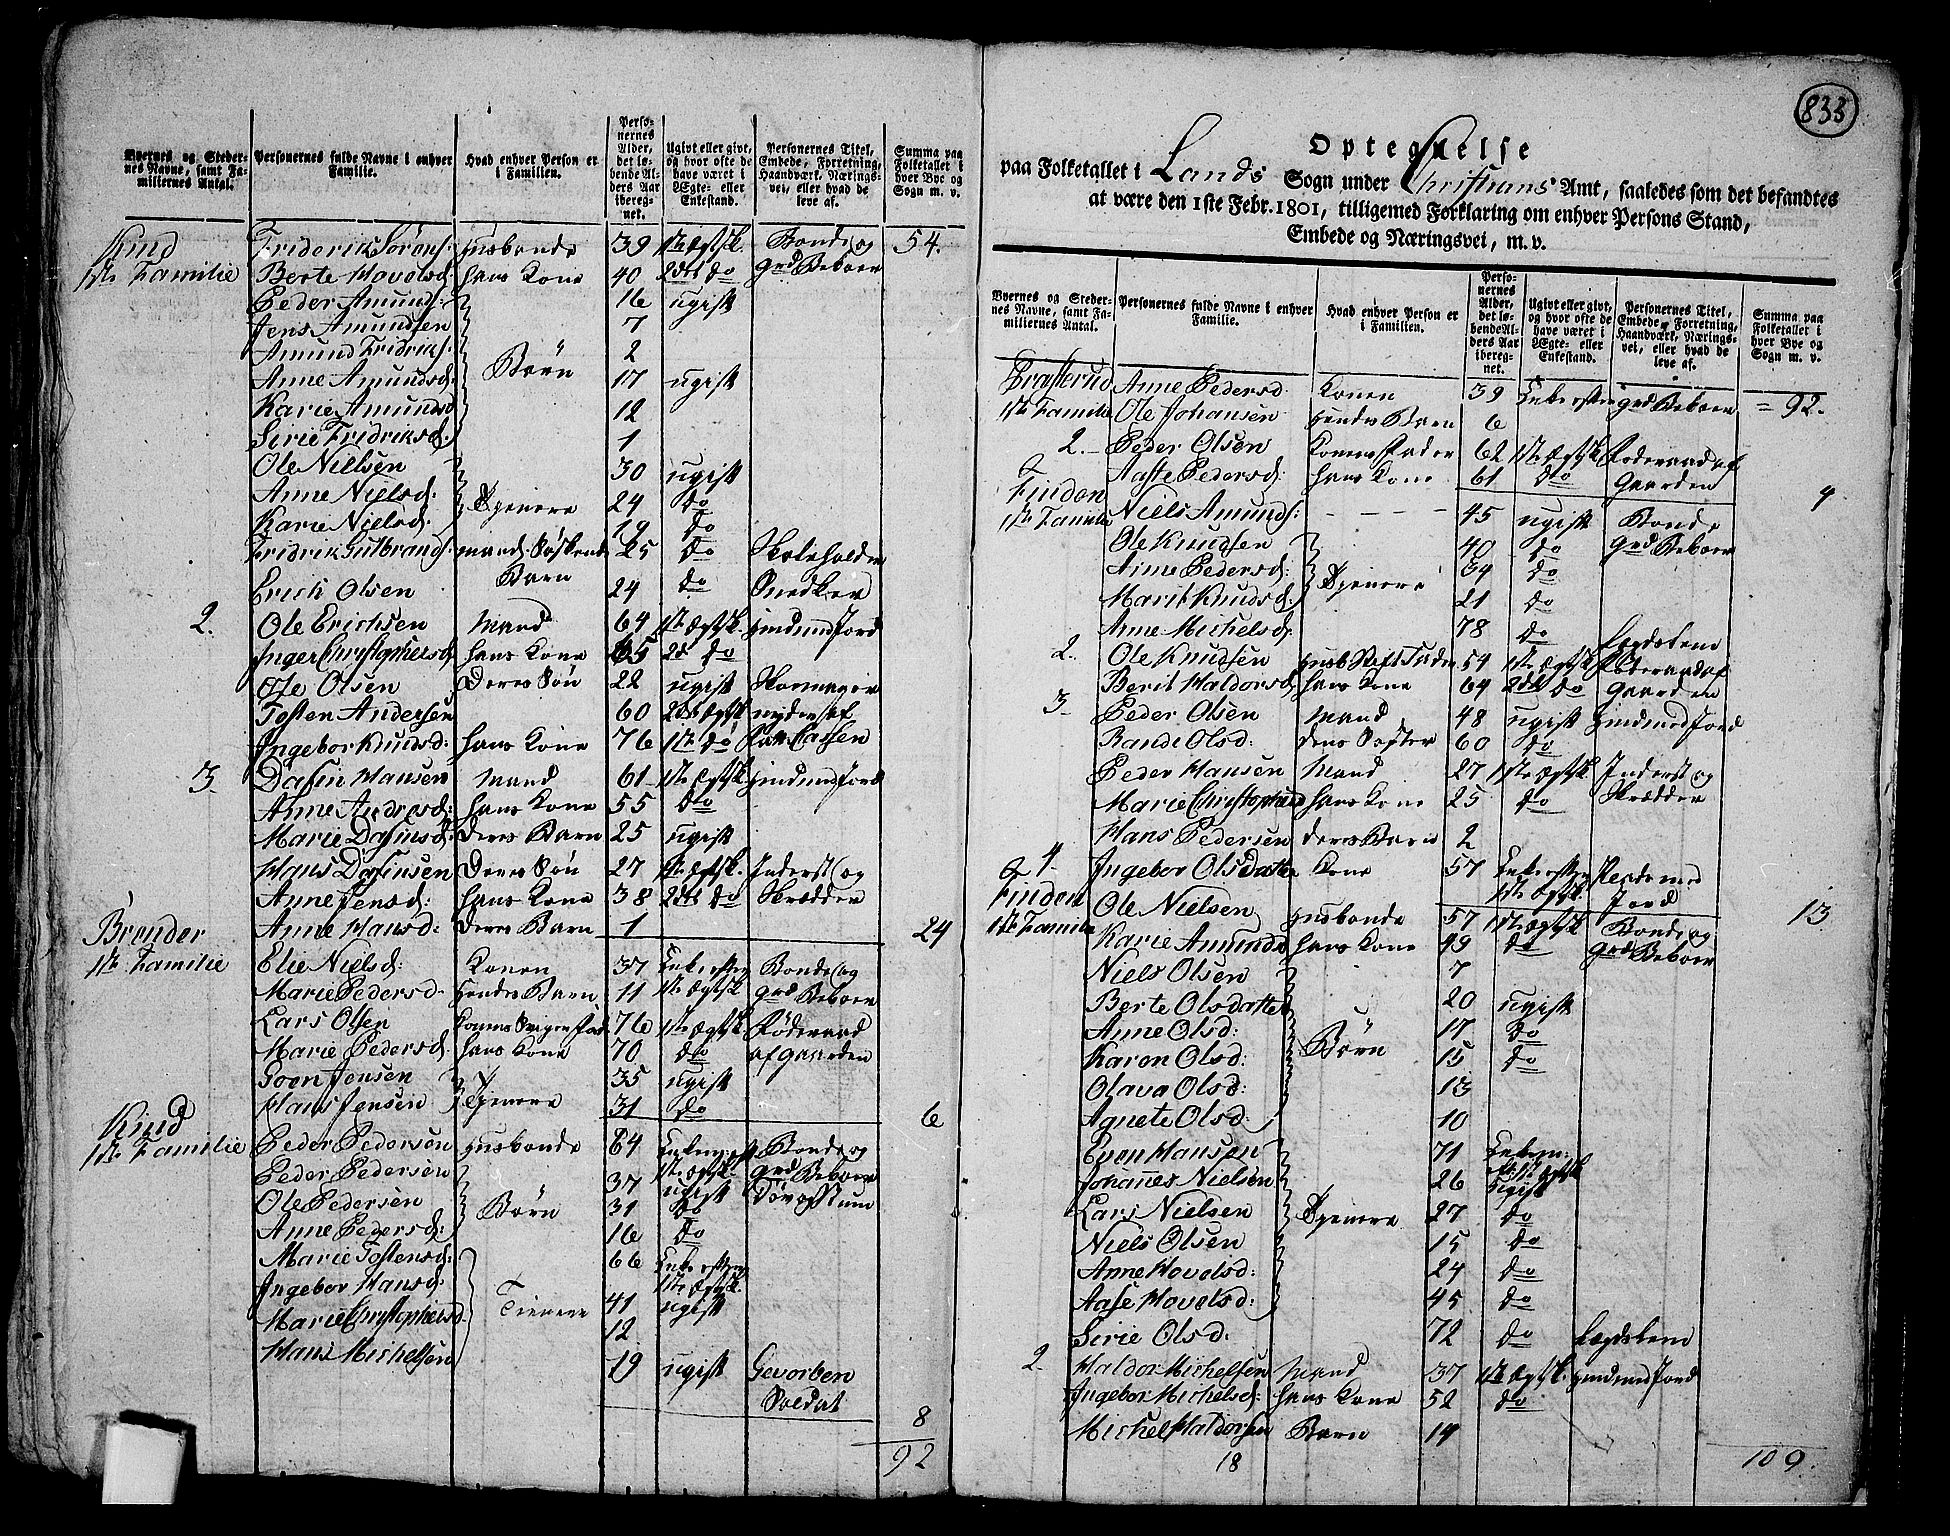 Byernes og Steder-
nes Navne, samt Fa-
miliernes Antal.
Personernes fulde Navne i enhver
Familie.
Hvad enhver Person er
i Familien.
Perso-
nernes
Alder,
det lø-
bende Al-
ders Aar
iberegnet.
Ugivt eller givt,
og hvor ofte de
have været i
Ægte- eller
Enkestand.
Personernes Titel,
Embede, Forretning,
Haandværk, Nærings-
vei, eller hvad de
leve af.
Summa paa
Folketallet i
hver Bye og
Sogn m. v.
Kind Friderik Sørens: Husbonde 39 1ste Ægtsk. Bonde og 54.
1ste Familie Berte Hovelsd. hans Kone 40 2det do grd Beboer
Peder Amunds: 16 ugift
Jens Amundsen 7
Amund Fridriks: 2
Anne Amundsd: Børn 17 ugift
Karie Amundsd 12
Sirie Fridriksd: 1
Ole Nielsen 30 ugift
Anne Nielsd: Tjenere 24 do
Karie Nielsd: 19 do
Fridrik Gulbrands: mands Søskende 25 do Skoleholder
Barn
Erich Olsen 24 do Snedker
2. Ole Erichsen Mand 64 1ste Ægtsk. huusmd Jord
Inger Christophersd hans Kone 65 2d do
Ole Olsen Deres Søn 22 ugift Skomager
Tosten Andersen 60 2det Ægtsk. nyder af
Ingebor Knudsd: hans Kone 76 1ste do Cassen
3. Dasin Hansen Mand 61 1ste Ægtsk. huusmd Jord
Anne Andresd: hans Kone 55 do
Marie Dasinsd: Deres Barn 25 ugift
Hans Dasinsen Deres Søn 27 1ste Ægtsk. Inderst og
Anne Jensd: hans Kone 38 2det do Skrædder
Anne Hansd: Deres Barn 1 24
Brender
1ste Familie Elie Nielsd: Konen 37 Enke efter Bonde og
Marie Pedersd. hendes Barn 11 1ste Ægtsk grd Beboer
Lars Olsen Konens Sviger Fad. 76 1ste Ægtsk. Føderaad
Marie Pedersd. hans Kone 70 do af gaarden
Poen Jensen 35 ugift
Hans Jensen Tjenere 31 do 6
Kind
1ste Familie Peder Pedersen Husbonde 64 Enkem: eft Bonde og
Peder Pedersen 37 1ste Ægtsk. grd Beboer
ugift Døv og Stum
Ole Pedersen Børn 31 do
Anne Pedersd: 16 do
Marie Tostensd: 66 Enke efter
1ste Ægtsk.
Ingebor Hansd: 41 ugift
Marie Christophersd. Tienere 12
Hans Michelsen 19 ugift Gevorben
Soldat
8
92
833
Optegnelse
paa Folketallet i Lands Sogn under Christians Amt, saaledes som det befandtes
at være den 1ste Febr. 1801, tilligemed Forklaring om enhver Persons Stand,
Embede og Næringsvei, m. v.
Byernes og Steder-
nes Navne, samt Fa-
miliernes Antal.
Personernes fulde Navne i enhver
Familie.
Hvad enhver Person er
i Familien.
Perso-
nernes
Alder,
det lø-
bende Al-
ders Aar
iberegnet.
Ugivt eller givt,
og hvor ofte de
have været i
Ægte- eller
Enkestand.
Personernes Titel,
Embede, Forretning,
Haandværk, Nærings-
vei, eller hvad de
leve af.
Summa paa
Folketallet i
hver Bye og
Sogn m. v.
Brasterud Anne Pedersd: Konen 39 Enke efter grd Beboer = 92.
1ste Familie Ole Johansen hendes Barn 6
2. Peder Olsen Konens Fader 62 1ste Ægtsk Føderaad af
Aaste Pedersd: hans Kone 61 do Gaarden 4
Finden
1ste Familie Niels Amunds: 45 ugift Bonde
Ole Knudsen 40 do grd Beboer
Anne Pedersd: Tjenere 34 do
Marit Knudsd: 21 do
Anne Michelsd: 78 do Lægdslem
2. Ole Knudsen Husb Stif Fader 54 1ste Ægtsk Føderaad af
Berit Haldorsd. hans Kone 64 2det do Gaarden
3. Peder Olsen Mand 48 ugift huusmd Jord
Rande Olsd: dens Søster 60 do
Peder Hansen Mand 27 1ste Ægtsk. Inderst og
Marie Christophersd hans Kone 25 do Skrædder
Hans Pedersen deres Barn 2
4. Ingebor Olsdatter Kone 57 Enke efter
1ste Ægtsk Jord 13.
Finden
1ste Familie Ole Nielsen Husbonde 57 1ste Ægtsk Bonde og
Karie Amundsd hans Kone 49 do grd Beboer
Niels Olsen 7
Berte Olsdatter 20 ugift
Anne Olsd: 17 do
Karen Olsd: Børn 15 do
Olava Olsd: 13
Agnete Olsd: 10
Even Hansen 71 Enkem:
1ste Ægtsk
Johannes Nielsen 26 ugift
Lars Nielsen Tjenere 27 do
Niels Olsen 15 do
Anne Hovelsd: 24 do
Aase Hovelsd: 45 do
Sirie Olsd: 72 do Lægdslem
2. Haldor Michelsen Mand 37 1te Ægtsk. huusmd Jord
Ingebor Michelsd. hans Kone 52 do
Michel Haldorsen Barn 14
18 109.